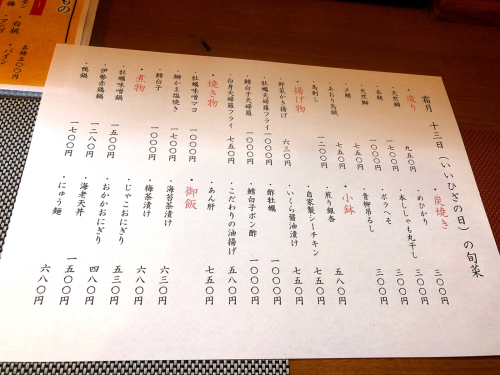 霜月 十三日(いいひざの日)の旬菜
・造り
・天然鯛 九五〇円
・本鮪 一七〇〇円
・天然鰤 一〇〇〇円
・〆鯖 七五〇円
・あおり烏賊 七五〇円
・馬刺し 一二〇〇円
・揚げ物
・野菜かき揚げ 六三〇円
・牡蠣天婦羅フライ 一〇〇〇円
・鱈白子天婦羅 一〇〇〇円
・白身大婦羅フライ 七五〇円
・焼き物
・牡蠣味噌マヨ 一〇〇〇円
・鰤かま塩焼き 一七〇〇円
・鱈白子 一〇〇〇円
・煮物
・牡蠣味噌鍋 一五〇〇円
・伊勢赤鶏鍋 一二八〇円
・鴨鍋 一七〇〇円
・炭焼き
・めひかり 三〇〇円
・本ししゃも丸干し 三〇〇円
・ボラへそ 三〇〇円
・青柳吊るし 三〇〇円
・小鉢
・煎り銀杏 五八〇円
・自家製シーチキン 五五〇円
・いくら醤油漬け 七五〇円
・酢牡蠣 一〇〇〇円
・鱈白子ポン酢 一〇〇〇円
・こだわりの油揚げ 五八〇円
・あん肝 七五〇円
・御飯
・海苔茶漬け 六三〇円
・梅茶漬け 六八〇円
・じゃこおにぎり 五三〇円
・おかかおにぎり 四八〇円
・海老天丼 一五〇〇円
・にゅう麺 六八〇円
もの
・白桃
・マンゴ
・パイン
各種五〇〇円